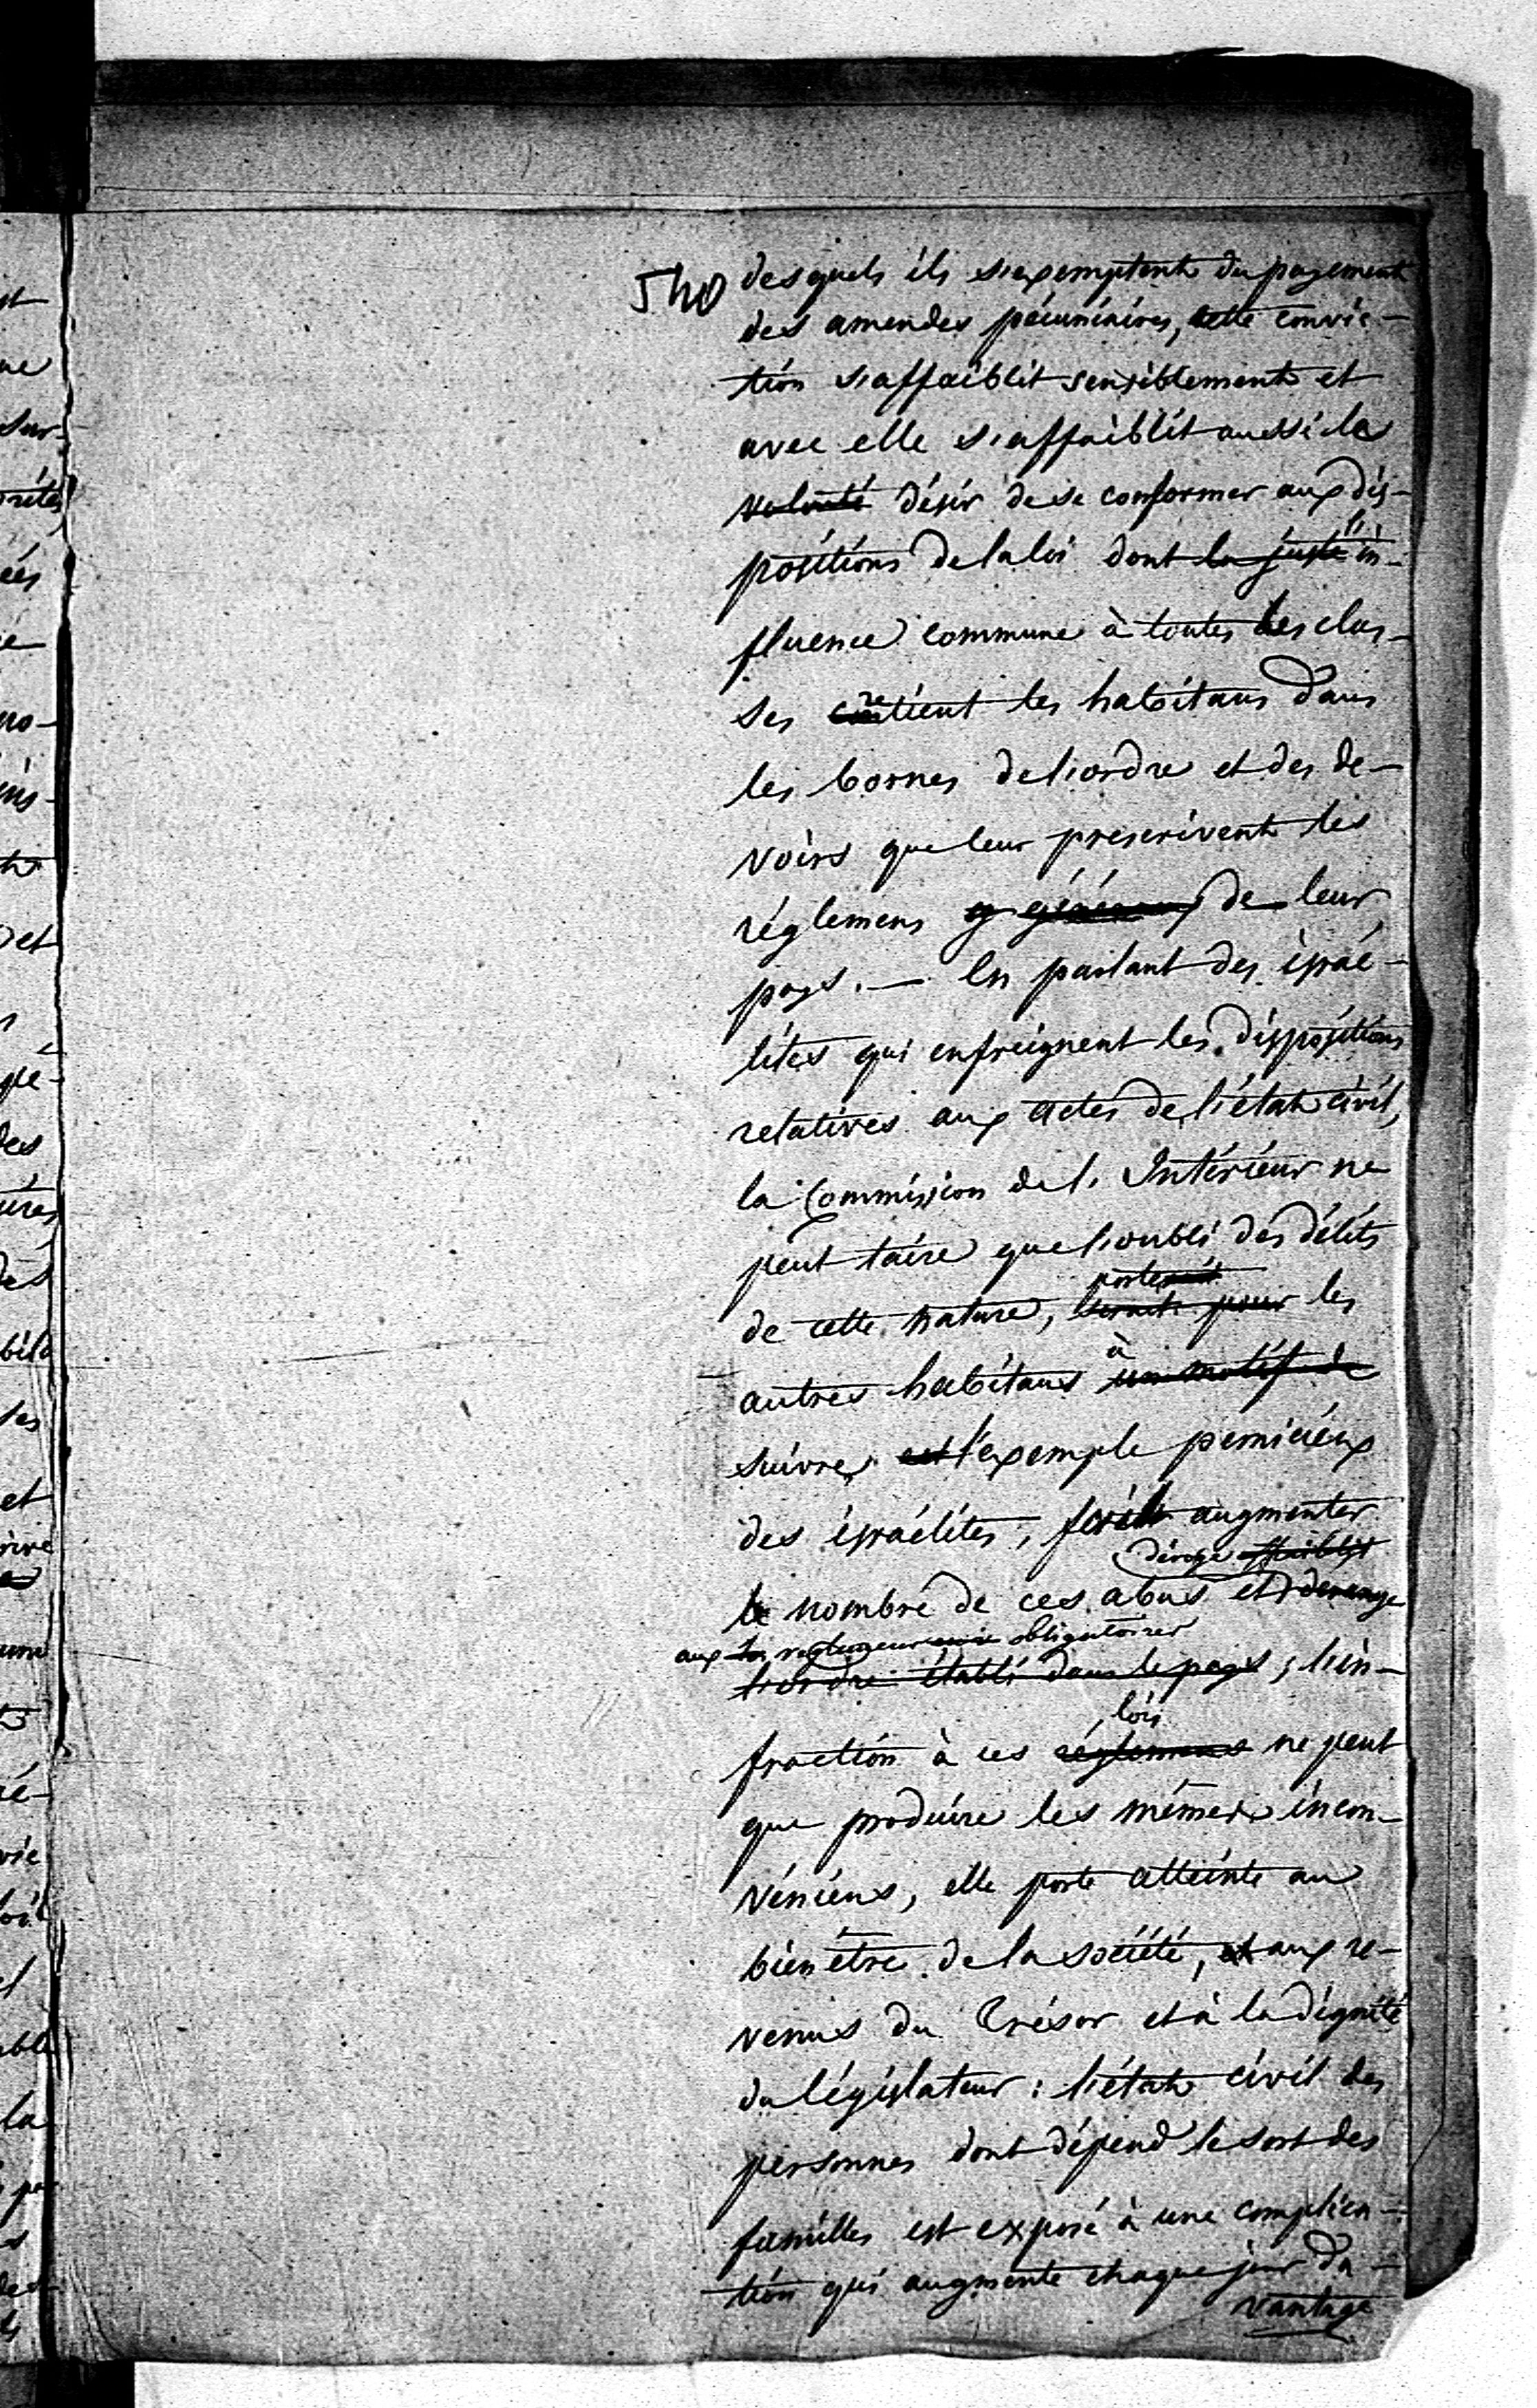 540
desquels ils s'exemptent du payement
des amendes pécuniaires, cette convic-
tion s'affaiblit sensiblement et
avec elle s'affaiblit aussi le
volonté désir de se conformer aux dis-
positions de la loi dont la juste l'in-
fluence commune à toutes les clas-
ses retient les habitans dans
les bornes de l'ordre et des de-
voirs que leur prescrivent les
réglemens généraux de leur
pays. — En parlant des israé-
lites qui enfreignent les dispositions
relatives aux actes de l'état civil,
la Commission de l'Intérieur ne
peut taire que l'oubli des délits
porterait
de cette nature, serait pour les
à
autres habitans un motif de
suivre cet l'exemple pernicieux
des israélites, ferait augmenter
déroge affaiblit
le nombre de ces abus et dérange
aux obligatoires
l'ordre établi dans le pays; l'in-
lois
fraction à ces réglemens ne peut
que produire les mêmes incon-
véniens, elle porte atteinte au
bien être de la société, et aux re-
venus du Trésor et à la dignité
du législateur: l'état civil des
personnes dont dépend le sort des
familles est exposé à une complica-
tion qui augmente chaque jour da-
vantage